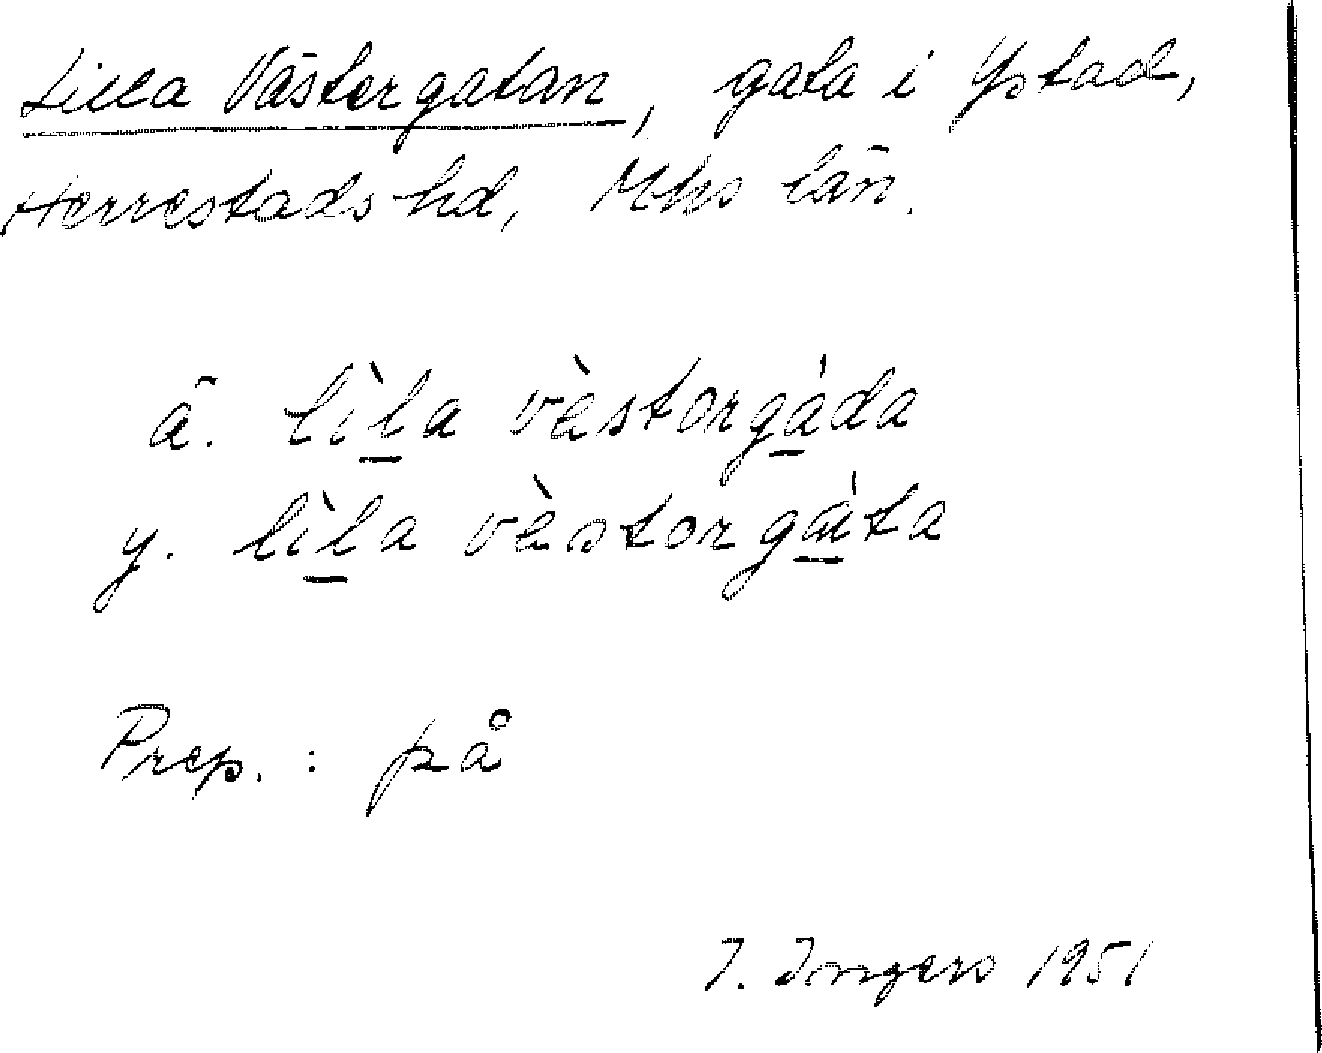 Lilla Västergatan, gata i Ystad,
Herrestads hd, Mhs län.
ä. lìla vèstorgáda
y. lìla vèstorgáta
Prep.: på
I. Ingers 1951